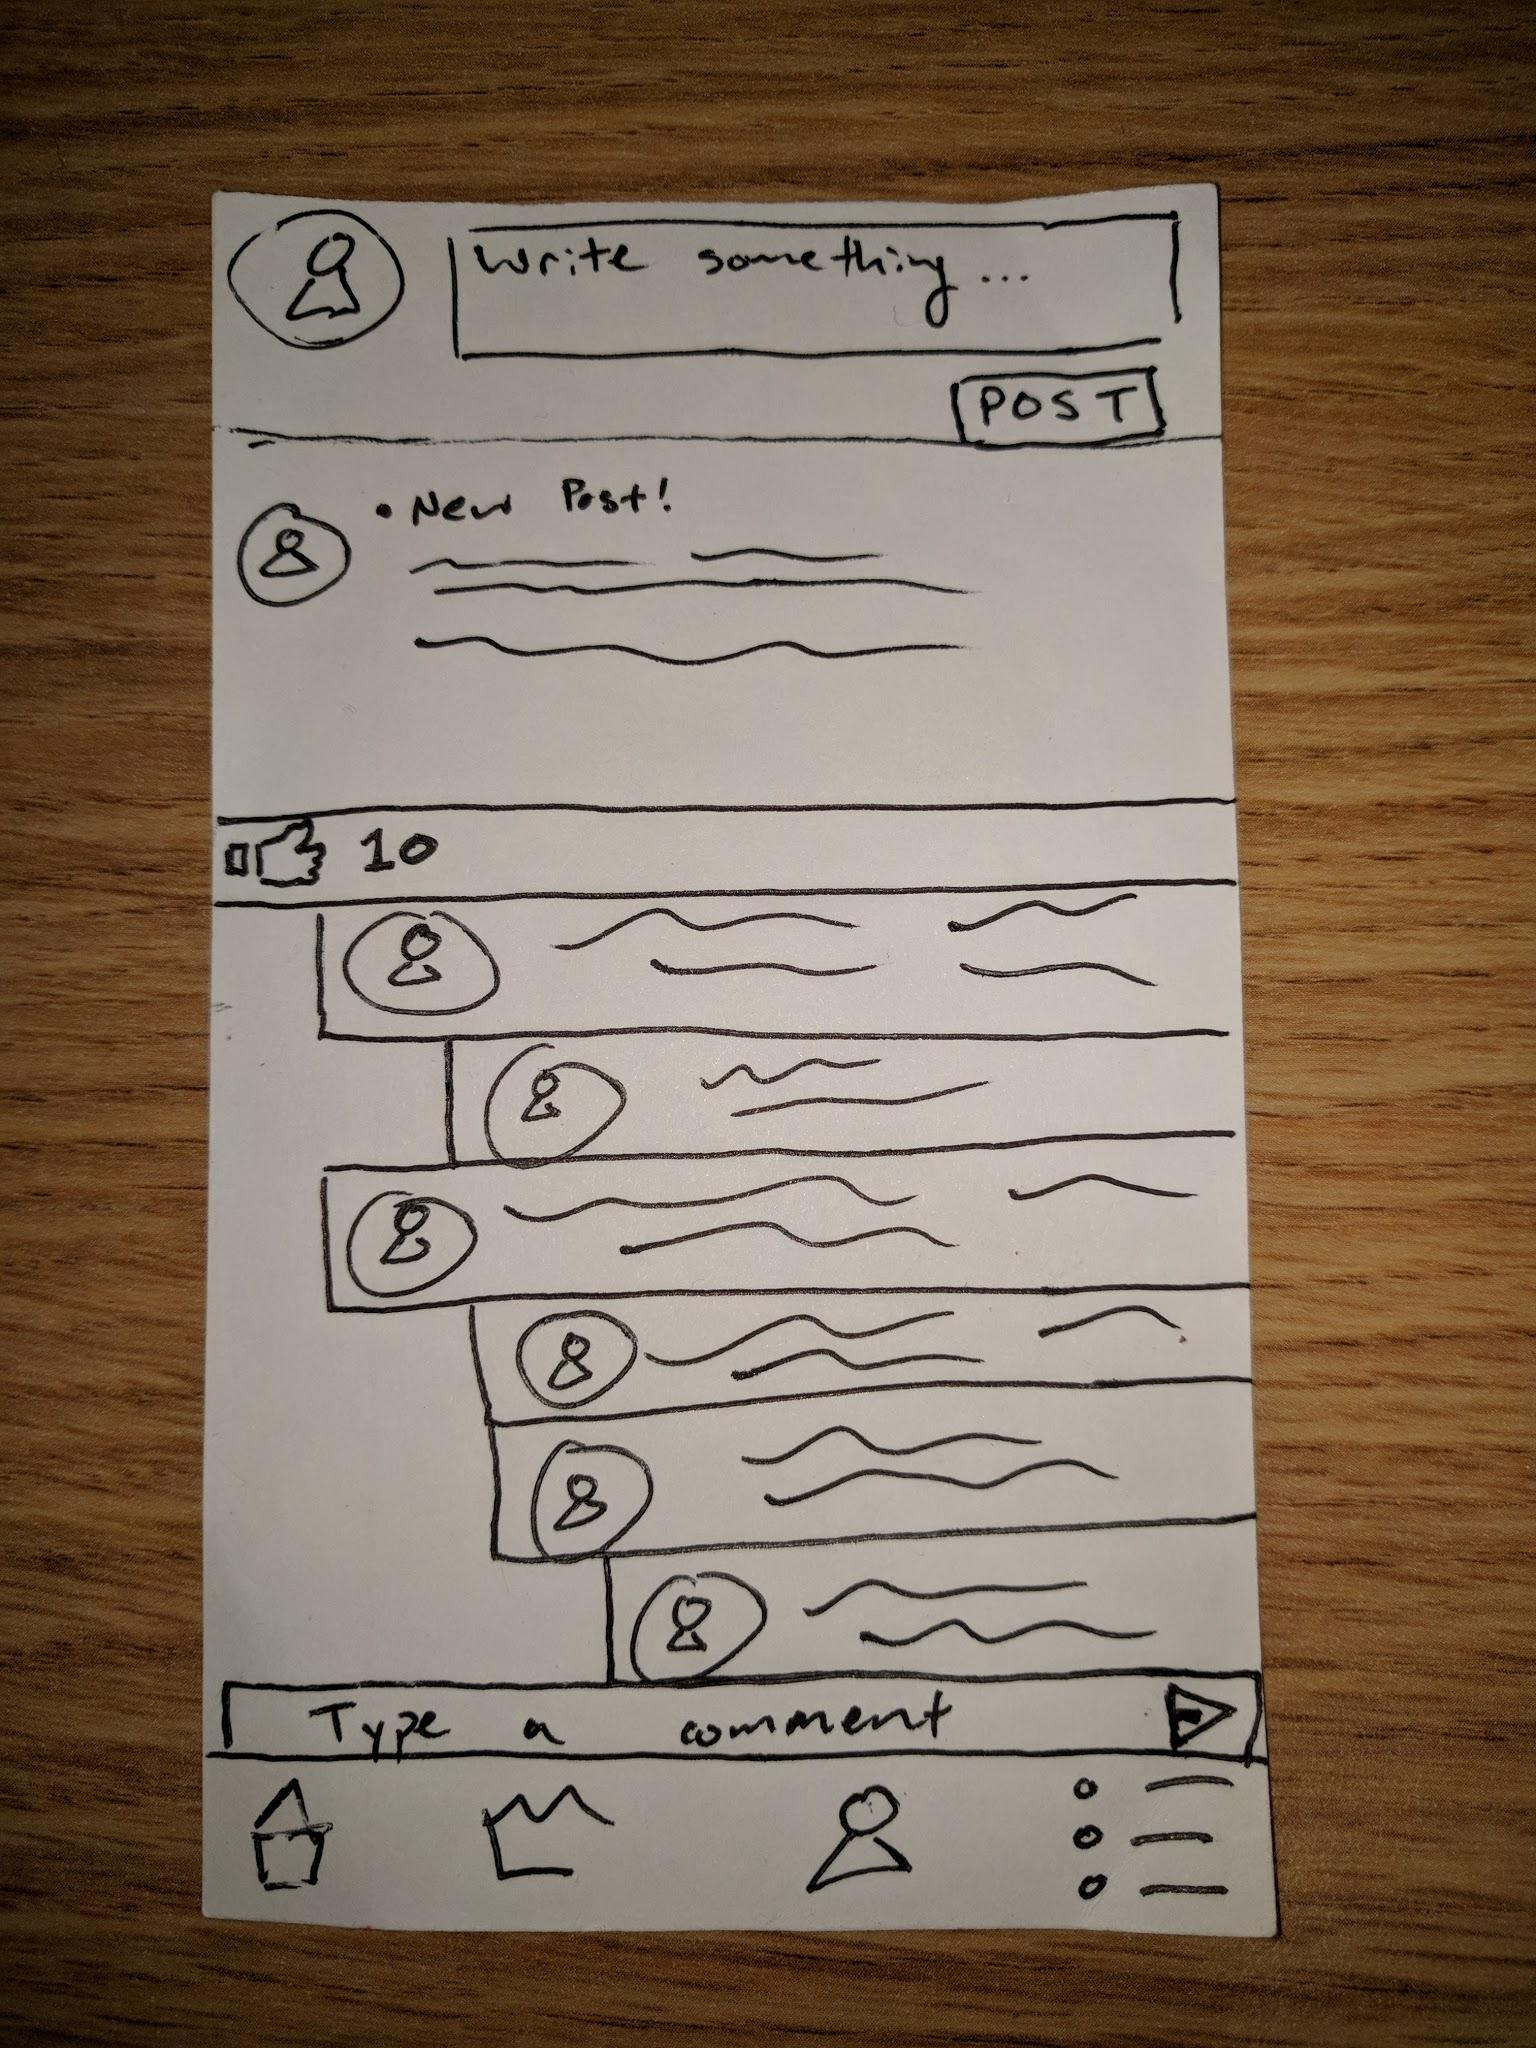 Write something...
POST
• New Post!
10
Type a comment